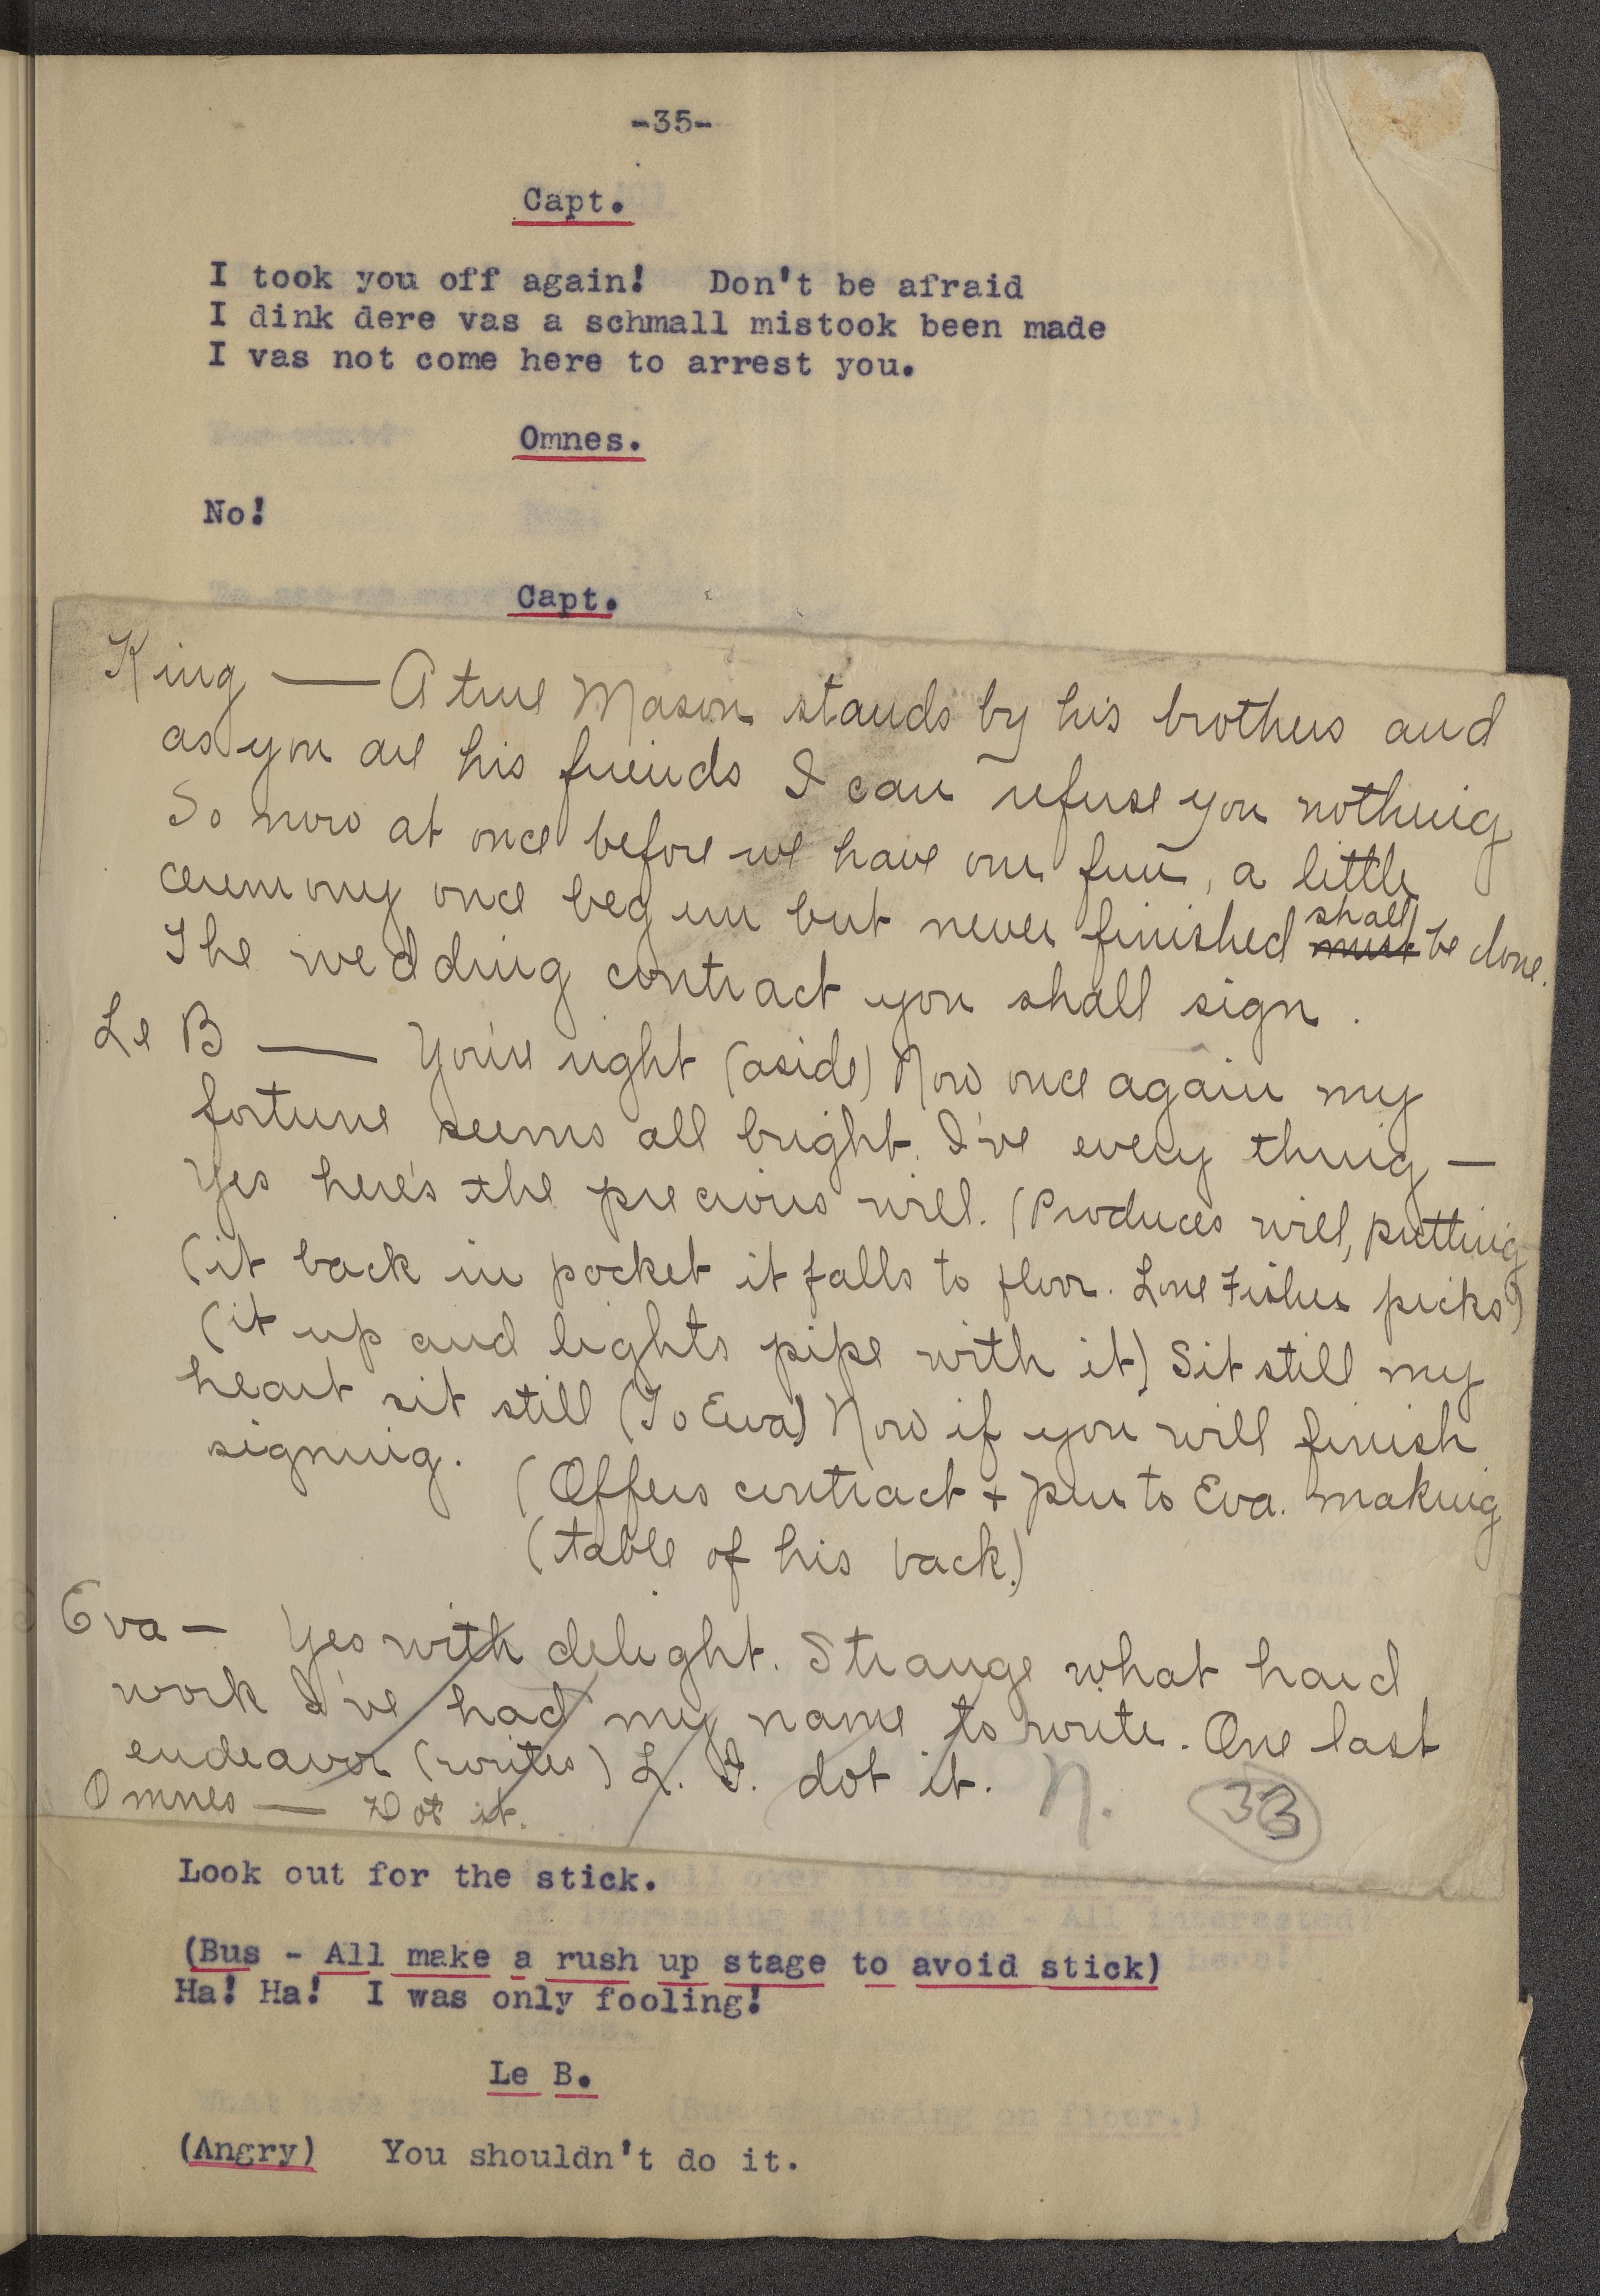 -35-
Capt.
I took you off again!   Don't be afraid
I dink dere vas a schmall mistook been made
I vas not come here to arrest you.
Omnes.
No!
Capt.
King — A true Mason stands by his brothers and
as you are his friends I can refuse you nothing
So now at once before we have our fun, a little
ceremony once begun but never finished must shall be done.
The wedding contract you shall sign.
Le B — You're right (aside) Now once again my
fortune seems all bright. I've every thing —
Yes here's the precious will. (Produces will, putting
(it back in pocket it falls to floor. Lone Fisher picks)
(it up and lights pipe with it) Sit still my
heart sit still (To Eva) Now if you will finish
signing.
(Offers contract + pen to Eva. making
(table of his back.)
Eva — Yes with delight. Strange what hard
work I've had my name to write. One last
endeavor (writes) L. I. dot it.
N. 33
Omnes — Dot it.
Look out for the stick.
(Bus - All make a rush up stage to avoid stick)
Ha! Ha!  I was only fooling!
Le B.
(Angry)   You shouldn't do it.